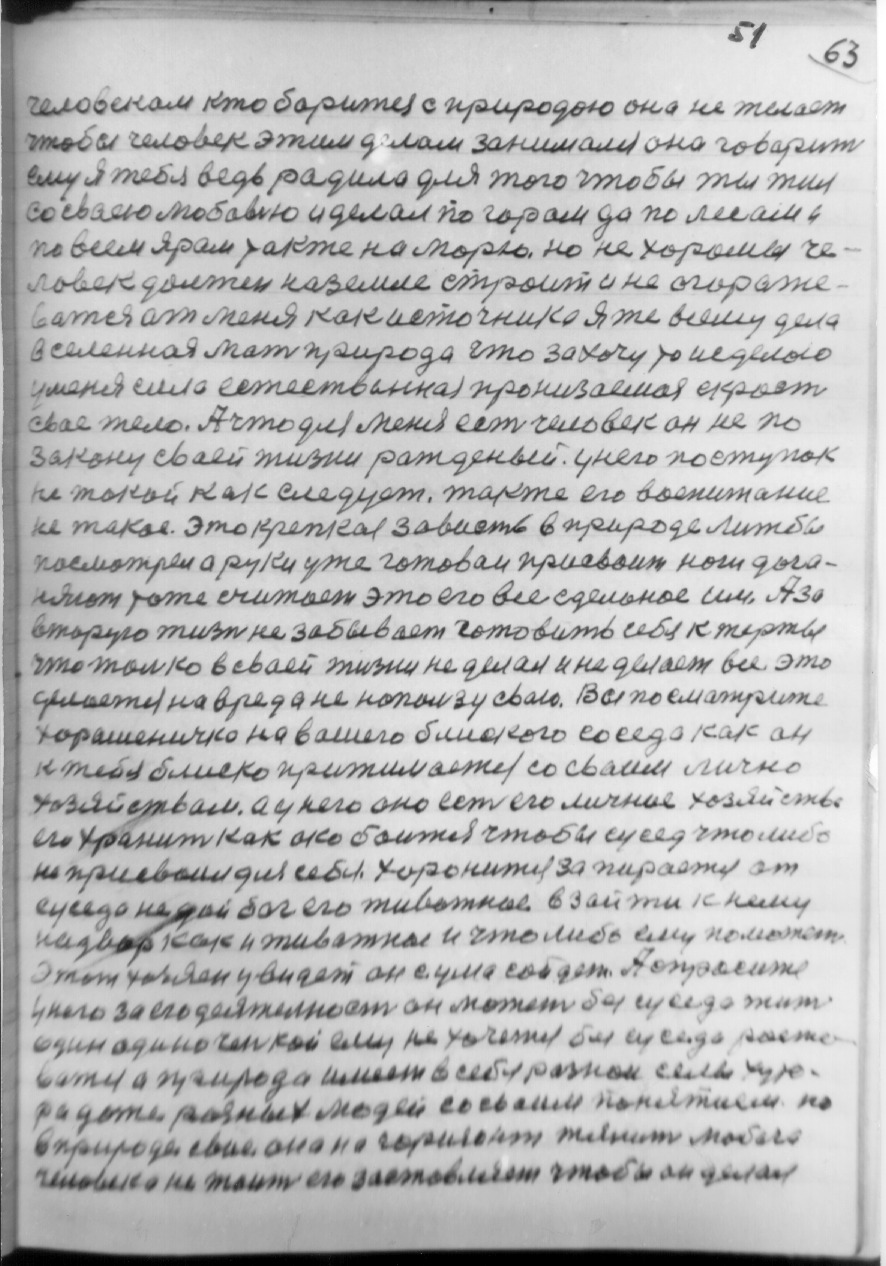 51
63
человекам кто борится с природою она не желает
чтобы человек этим делам занимался она говарит
ему я тебя ведь радила для того чтобы ты жил
со сваею любовью и делал по горам да по лесам и
по всем ярам также на морю. но не хорошы че-
ловек должен на земле строит и не огораже-
ватся от меня как источника я же всему дела
вселенная мат природа что захочу то и сделаю
у меня сила естественная пронизаемая скрост
свае тело. А что для меня ест человек он не по
закону сваей жизни рожденый. у него поступок
не такой как следует. также его воспитание
не такое. Это крепкая зависть в природе лиж бы
посмотрел а руки уже готоваи присвоит ноги дога-
няют тоже считает это его все сделоное им. А за
вторую жизн не забывает готовить себя к жертвы
что толко в сваей жизни не делал и не делает все это
делается на вред а не на ползу сваю. Вы посматрите
хорашеничко на вашего близкого соседа как он
к тебя блиско прижимается со сваим лично
хозяйствам. а у него оно ест его личное хозяйство
его хранит как око боится чтобы сусед что либо
не присвоил для себя. хоронится запирается от
суседа не дай бог его живатное взайти к нему
на двор как и живатное и что либо ему поможет.
Этот хозяен увидет он с ума сойдет. А спросите
у него за его деятелност он может без суседа жит
один одиночен кой ему не хочется без суседа роста
ватся а природа имеет в себя разнои силы
даже разных людей со сваим понятием. но
в природе свае. она на горизонт тянит любого
человека не таит его заставляет чтобы он делал